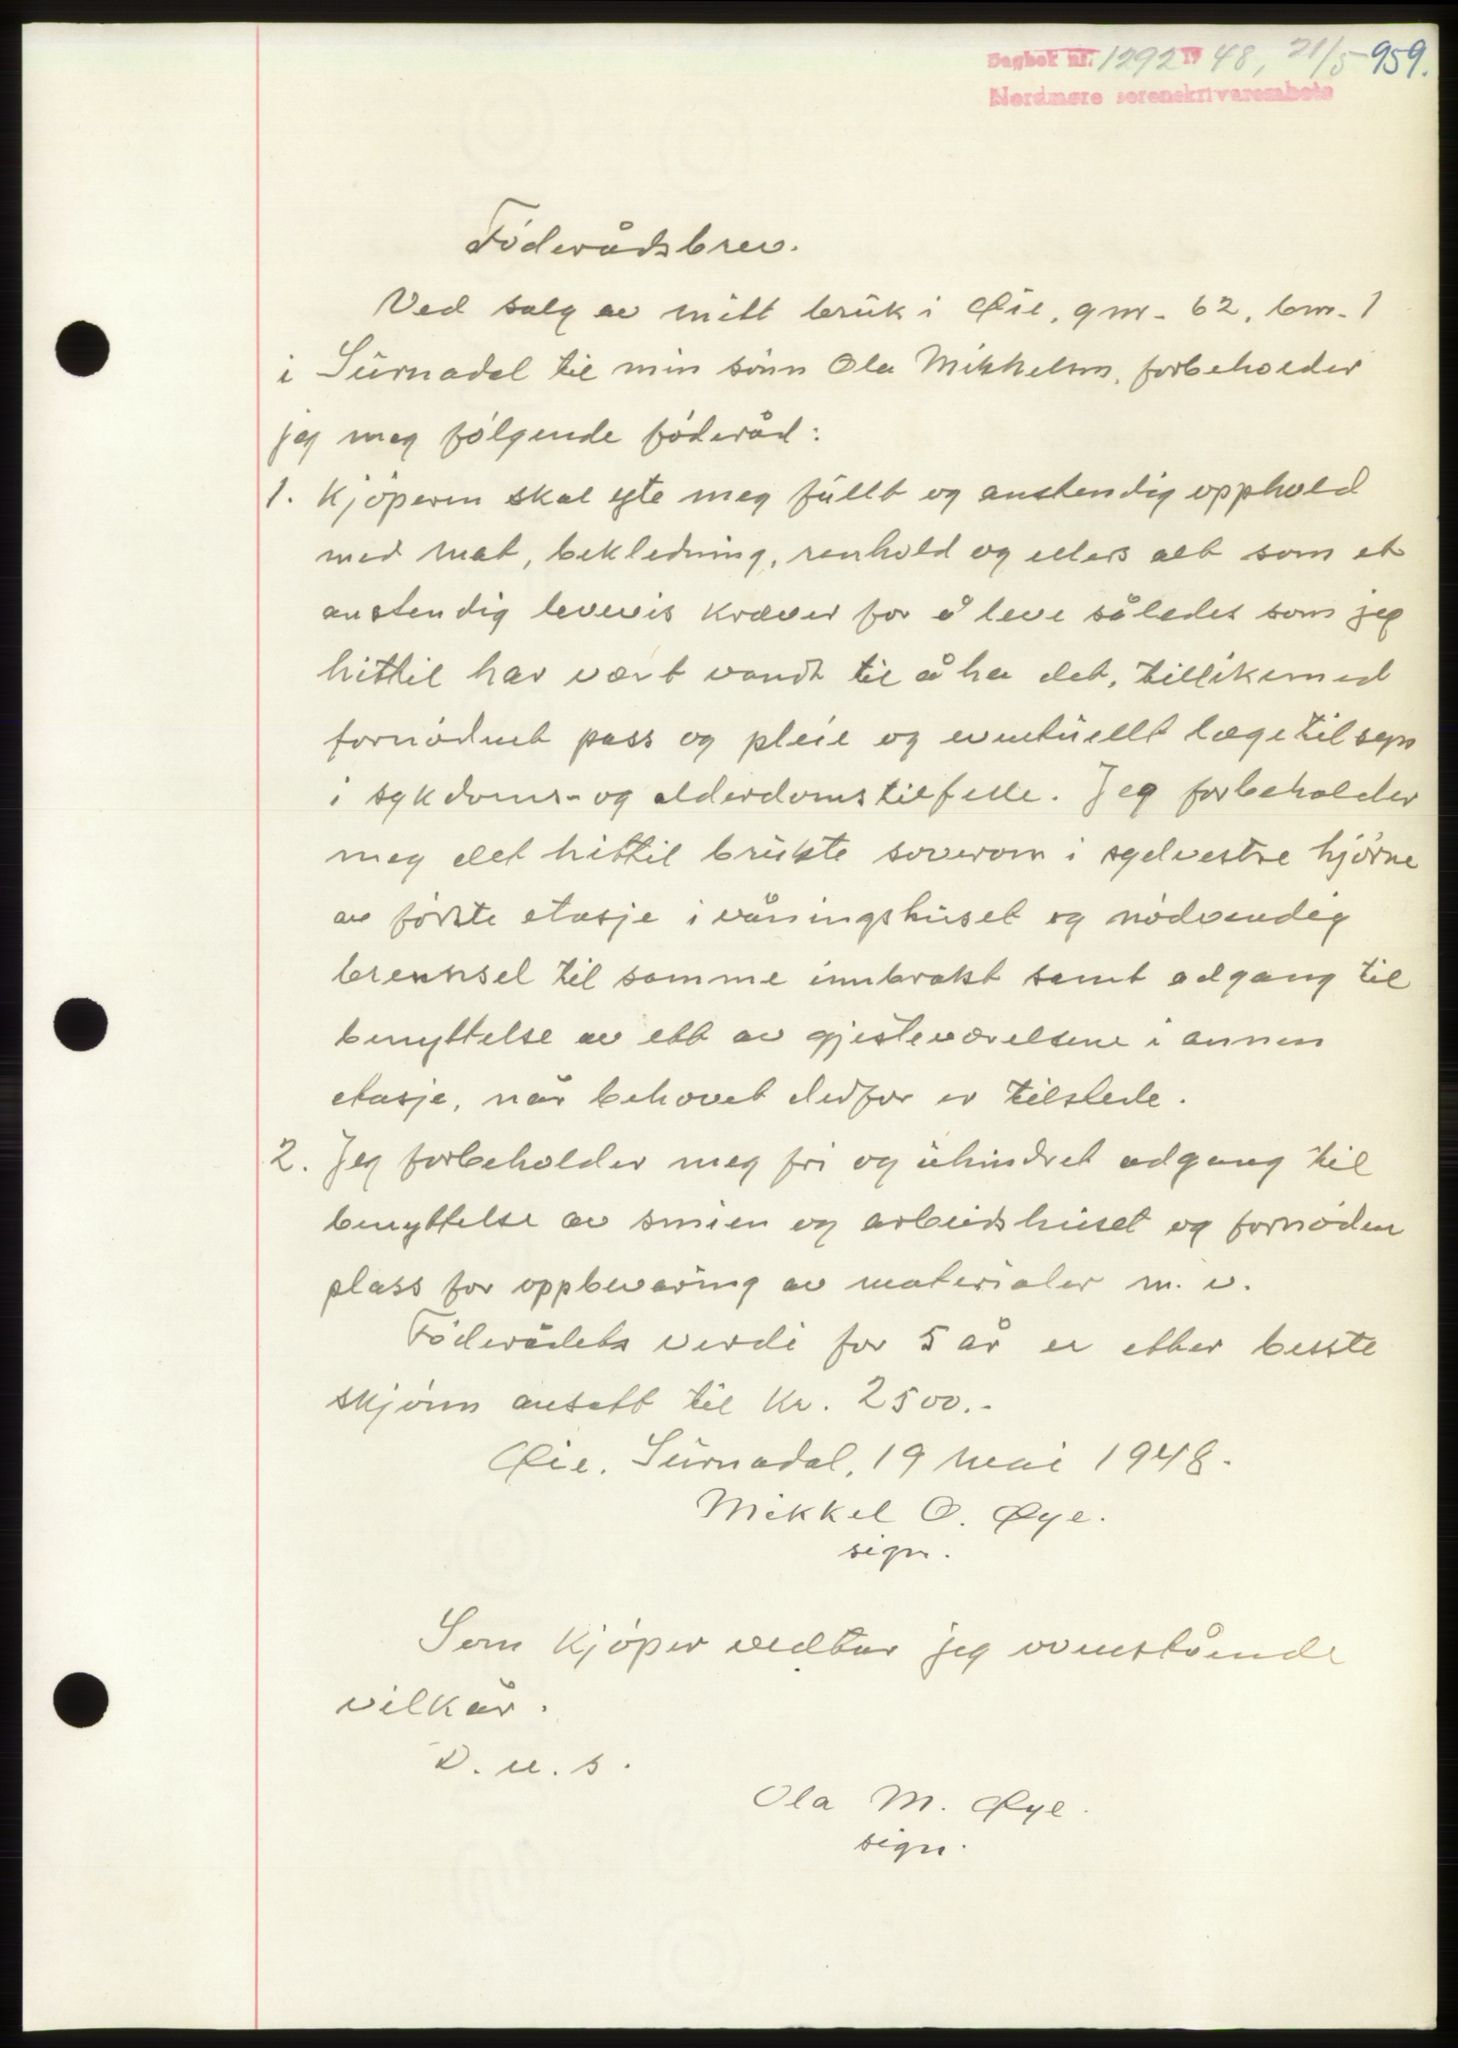 Dagbok nr. 1292 19 48, 21/5 959.
Nordmøre sorenskrivarembete
Föderådsbrev.
Ved salg av mitt bruk i Øie, gnr. 62, bnr. 1
i Surnadal til min sönn Ola Mikkelsen, forbeholder
jeg meg fölgende föderåd:
1. Kjöperen skal yte meg fullt og anstendig opphold
med mat, bekledning, renhold og ellers alt som et
anstendig levevis krever for å leve således som jeg
hittil har vært vandt til å ha det, tillikemed
fornödent pass og pleie og eventuellt lægetilsyn
i sykdoms- og alderdomstilfelle. Jeg forbeholder
meg det hittil brukte soverom i sydvestre hjörne
av förste etasje i våningshuset og nödvendig
brennsel til samme innbrakt samt adgang til
benyttelse av ett av gjesteværelsene i annen
etasje, når behovet derfor er tilstede.
2. Jeg forbeholder meg fri og uhindret adgang til
benyttelse av smien og arbeidshuset og fornöden
plass for oppbevaring av materialer m. v.
Föderådets verdi for 5 år er etter besste
skjönn ansatt til Kr. 2500.-
Øie, Surnadal, 19 mai 1948.
Mikkel O. Øye.
sign.
Som kjöper vedtar jeg ovenstående
vilkår.
D. u. s.
Ola M. Øye.
sign.